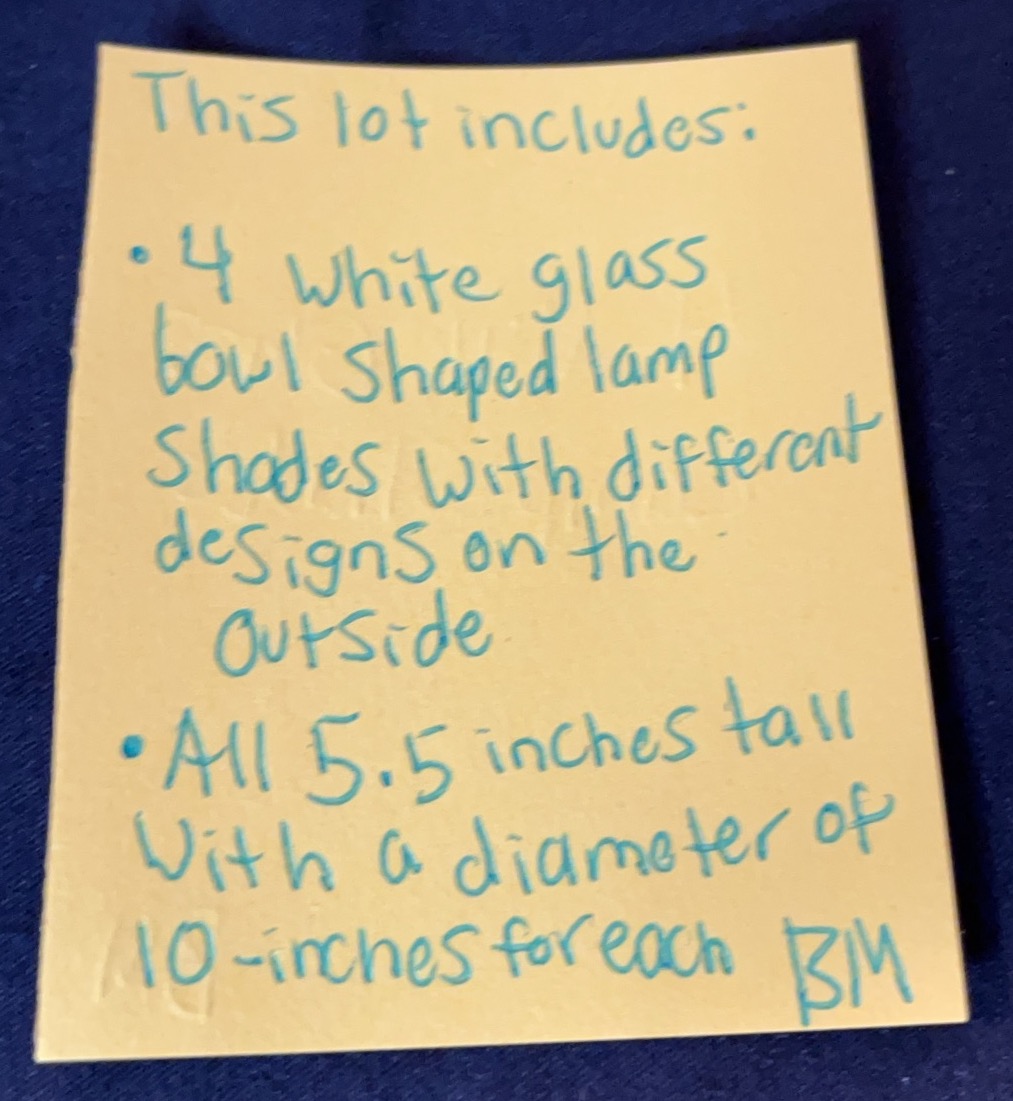 This lot includes:
• 4 white glass
bowl shaped lamp
shades with different
designs on the
outside
• All 5.5 inches tall
with a diameter of
10-inches for each BM